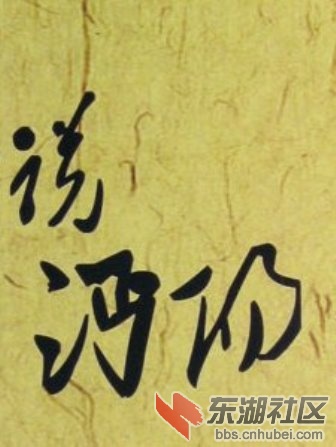 说
沔阳
东湖社区
bbs.cnhubei.com